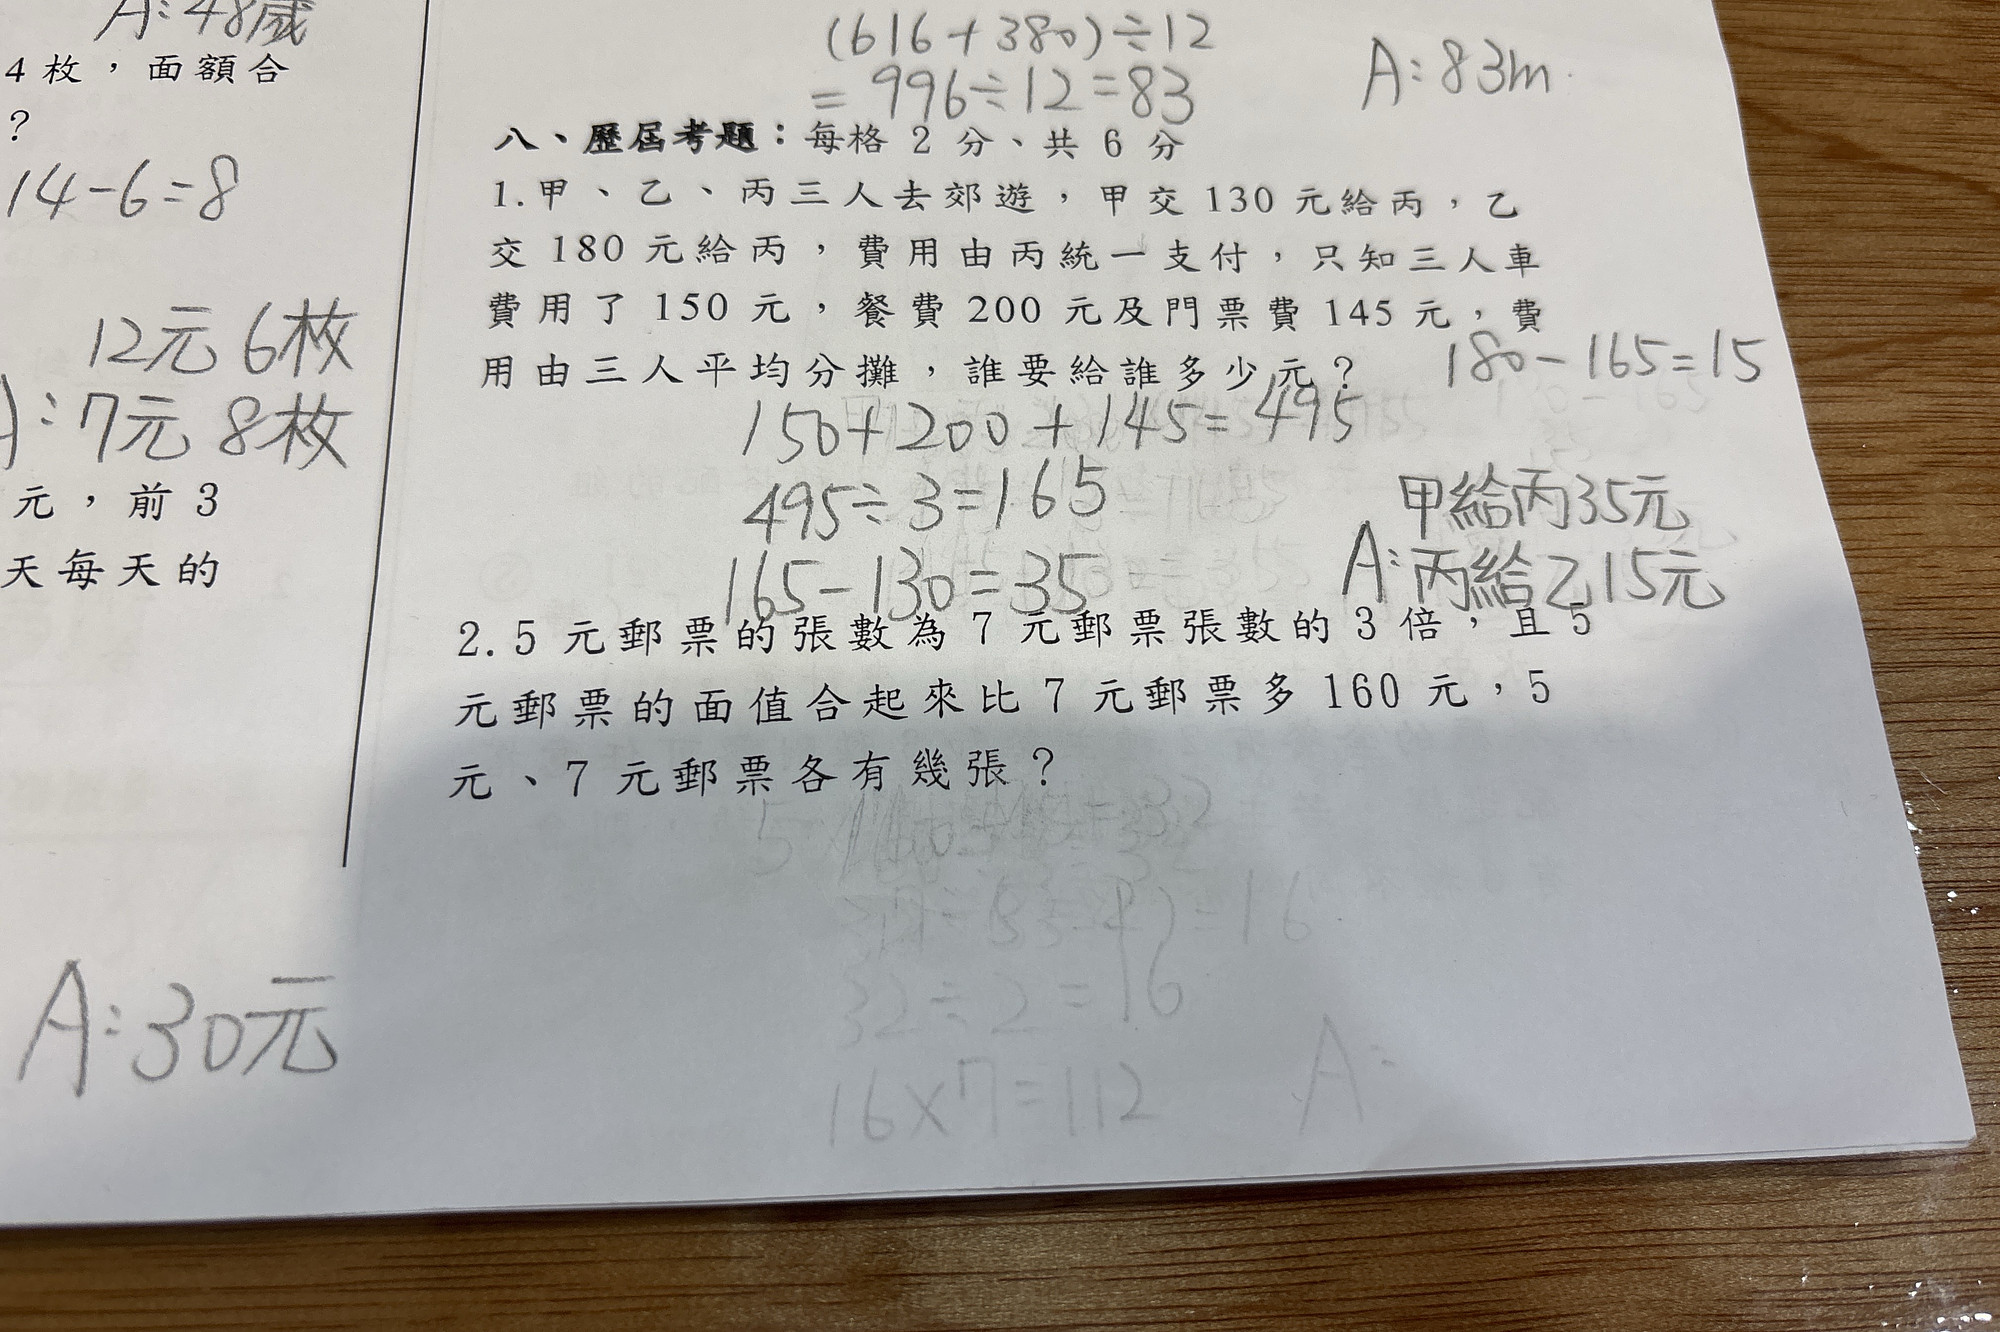 A:48歲
4枚，面額合
?
14-6=8
12元 6枚
A:7元 8枚
元，前3
天每天的
A:30元
(616+380)÷12
=996÷12=83
A:83m
八、歷屆考題：每格2分、共6分
1.甲、乙、丙三人去郊遊，甲交130元給丙，乙
交180元給丙，費用由丙統一支付，只知三人車
費用了150元，餐費200元及門票費145元，費
用由三人平均分攤，誰要給誰多少元？
180-165=15
150+200+145=495
495÷3=165
165-130=35
甲給丙35元
A:丙給乙15元
2.5元郵票的張數為7元郵票張數的3倍，且5
元郵票的面值合起來比7元郵票多160元，5
元、7元郵票各有幾張？
32÷2=16
16×7=112
A: